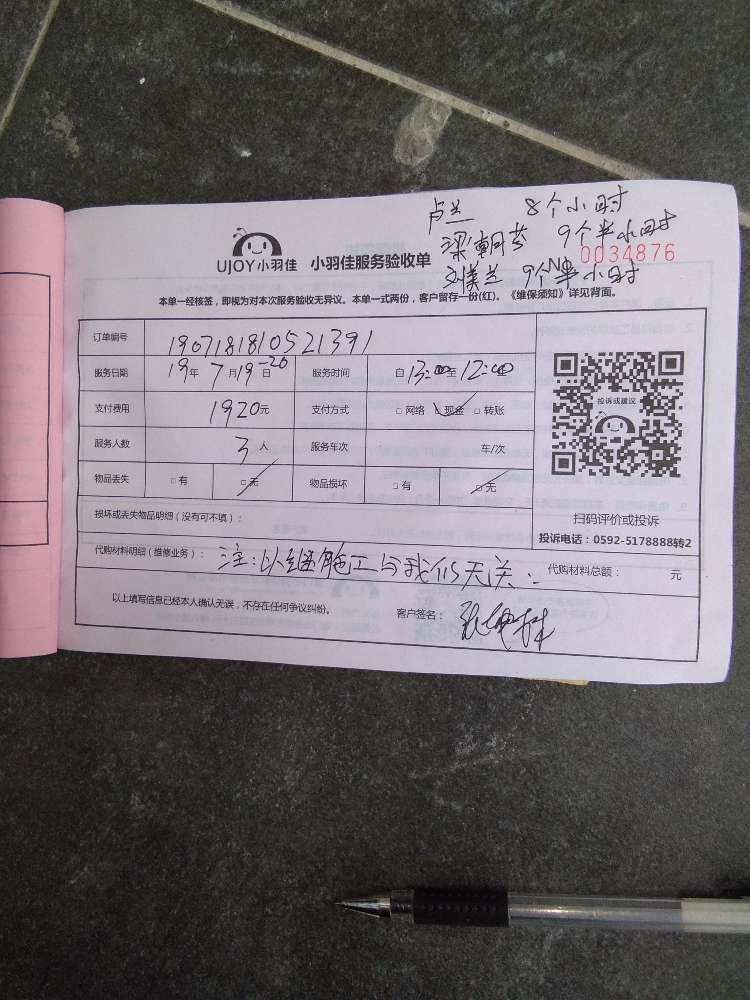 卢兰 8个小时
梁朝芬 9个半小时
刘美兰 9个半小时
UJOY小羽佳 小羽佳服务验收单
No 0034876
本单一经核签，即视为对本次服务验收无异议。本单一式两份，客户留存一份(红)。《维保须知》详见背面。
订单编号 1907181810521391
服务日期 19年7月19-20日 服务时间 自13:00至12:00
支付费用 1920元 支付方式 □网络 □现金 □转账
服务人数 3人 服务车次 车/次
物品丢失 □有 □无 物品损坏 □有 □无
投诉或建议
损坏或丢失物品明细（没有可不填）：
扫码评价或投诉
投诉电话：0592-5178888转2
代购材料明细（维修业务）： 注：以 施工与我们无关 代购材料总额： 元
以上填写信息已经本人确认无误，不存在任何争议纠纷。 客户签名：